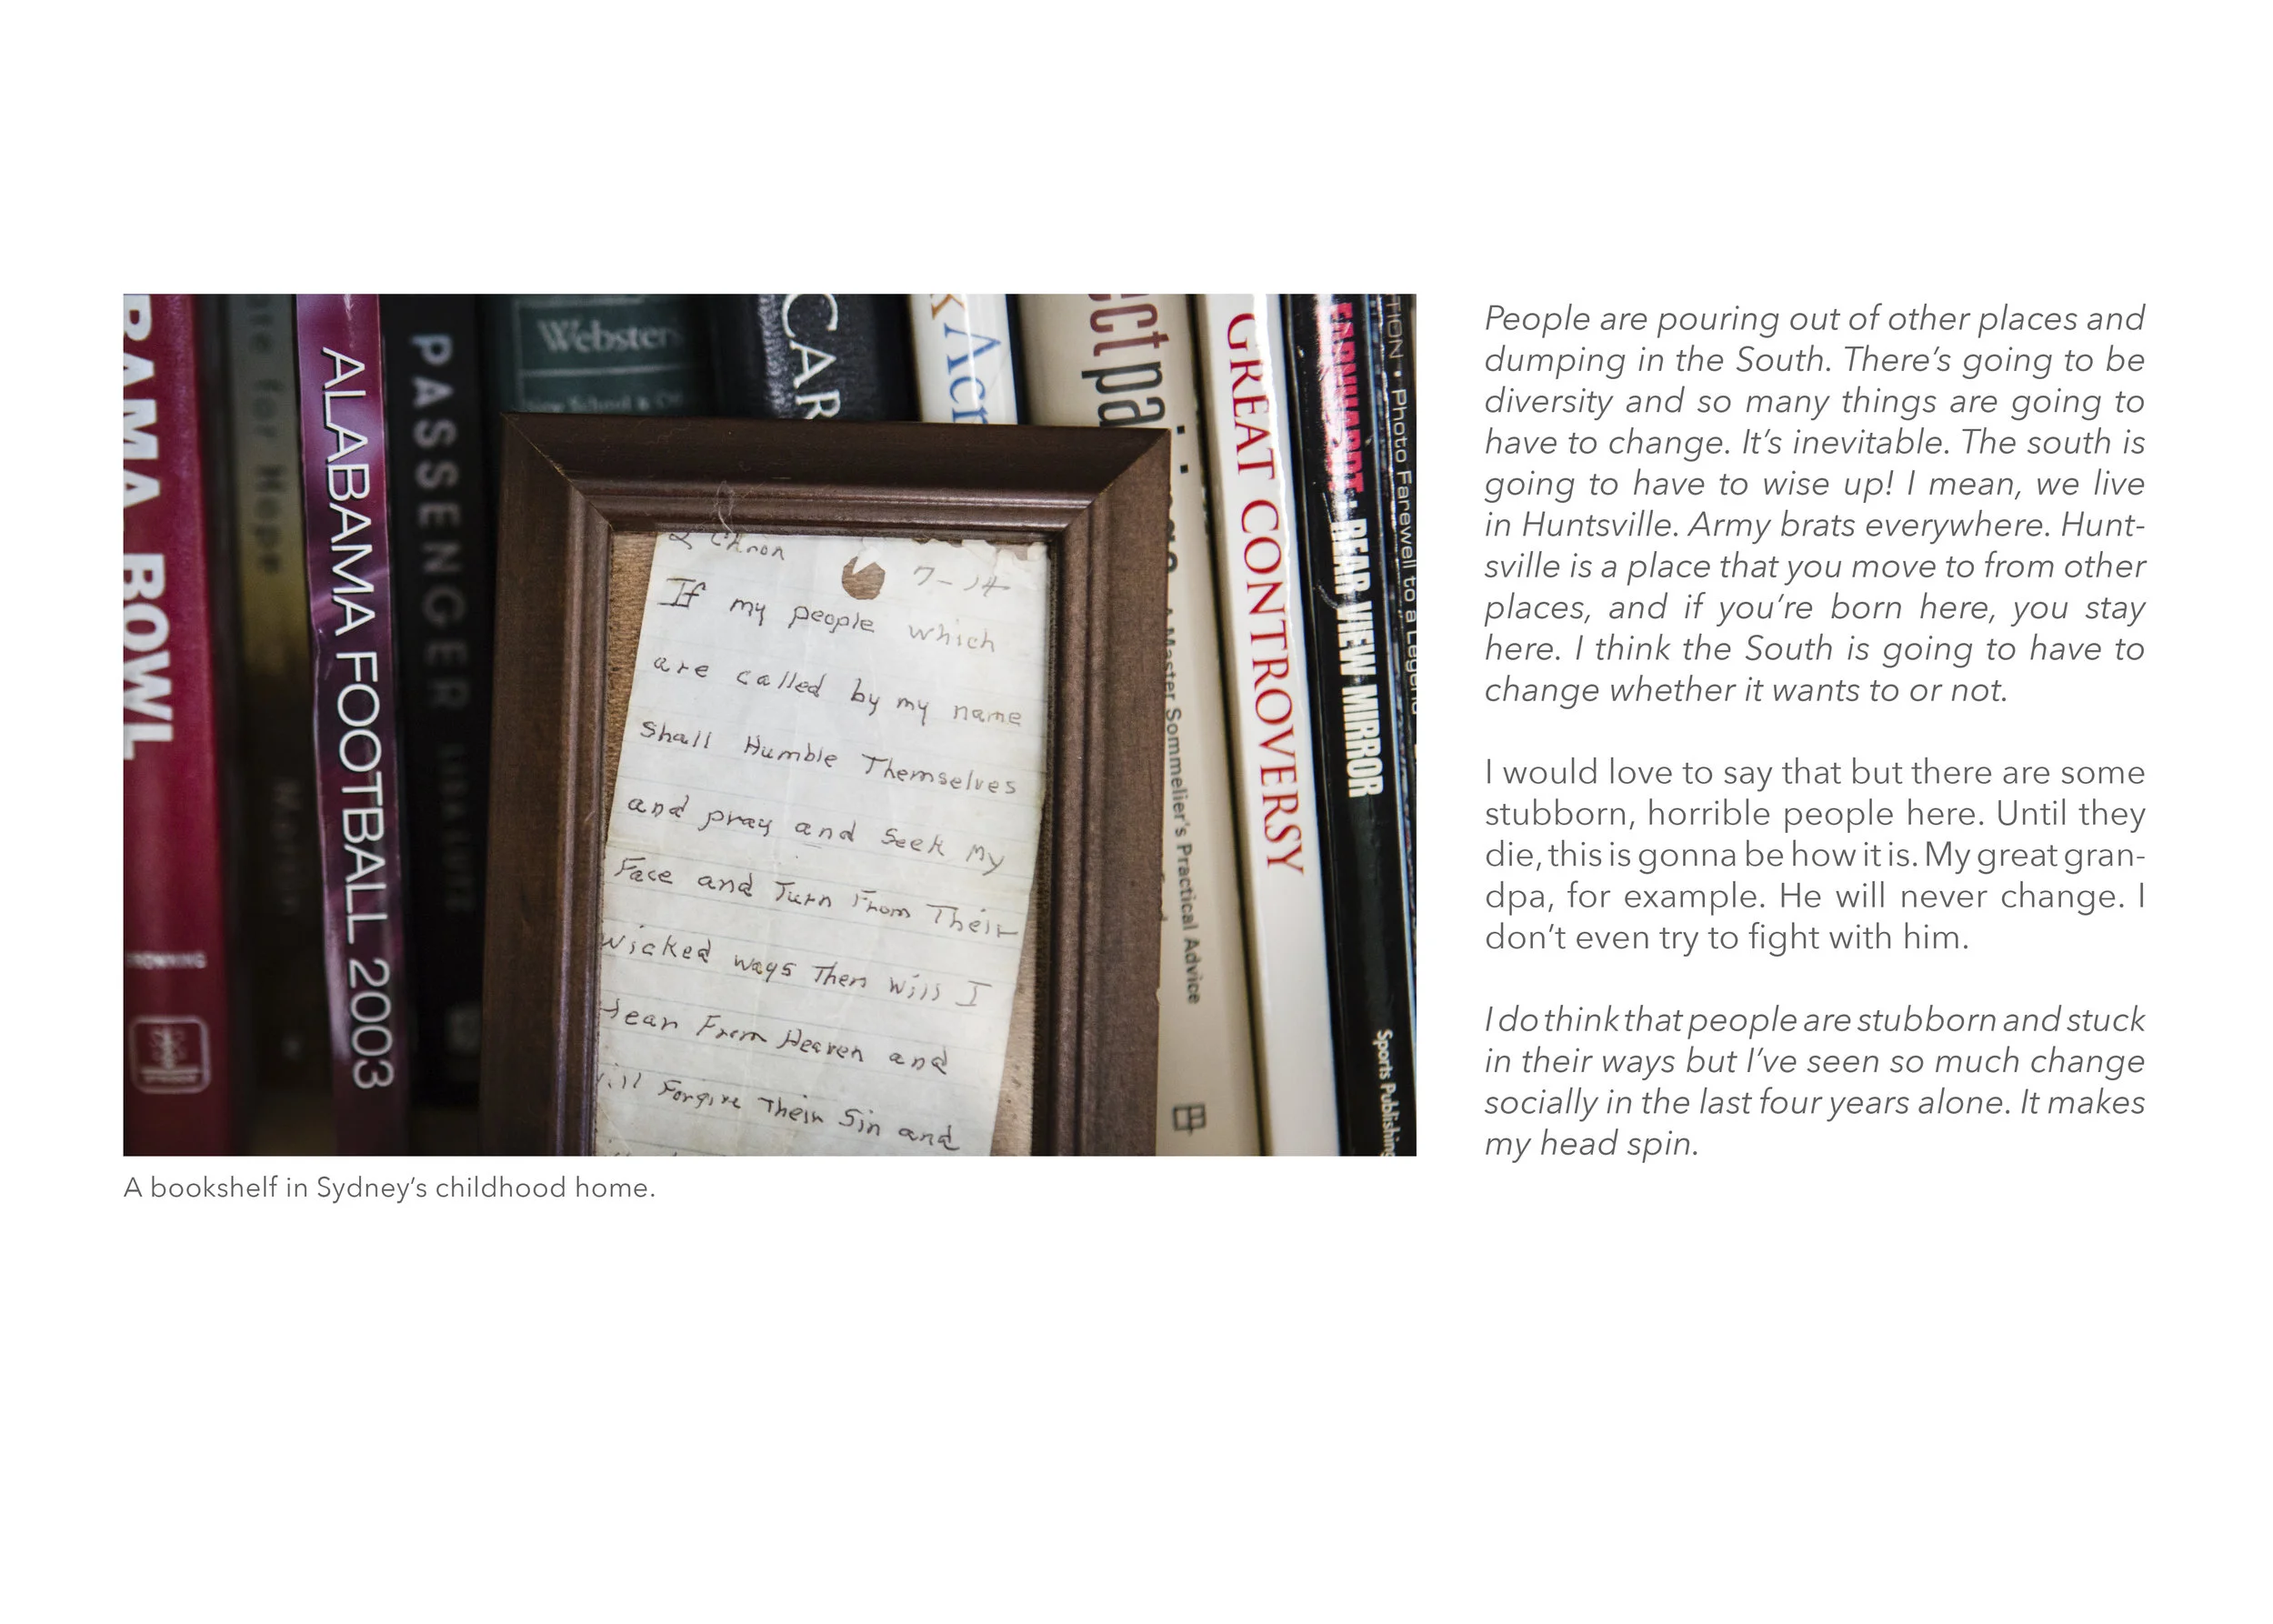 BAMA BOWL
ALABAMA FOOTBALL 2003
PASSENGER
Webster
CAR
Acr
ct pa
A Master Sommelier's Practical Advice
GREAT CONTROVERSY
EARNHARDT: REAR VIEW MIRROR
Sports Publishing
TION • Photo Farewell to a Legend
2 Chron
7-14
If my people which
are called by my name
shall Humble Themselves
and pray and seek my
Face and Turn From Their
Wicked ways Then Will I
Hear From Heaven and
ill Forgive Their Sin and
A bookshelf in Sydney's childhood home.
People are pouring out of other places and
dumping in the South. There's going to be
diversity and so many things are going to
have to change. It's inevitable. The south is
going to have to wise up! I mean, we live
in Huntsville. Army brats everywhere. Hunt-
sville is a place that you move to from other
places, and if you're born here, you stay
here. I think the South is going to have to
change whether it wants to or not.
I would love to say that but there are some
stubborn, horrible people here. Until they
die, this is gonna be how it is. My great gran-
dpa, for example. He will never change. I
don't even try to fight with him.
I do think that people are stubborn and stuck
in their ways but I've seen so much change
socially in the last four years alone. It makes
my head spin.